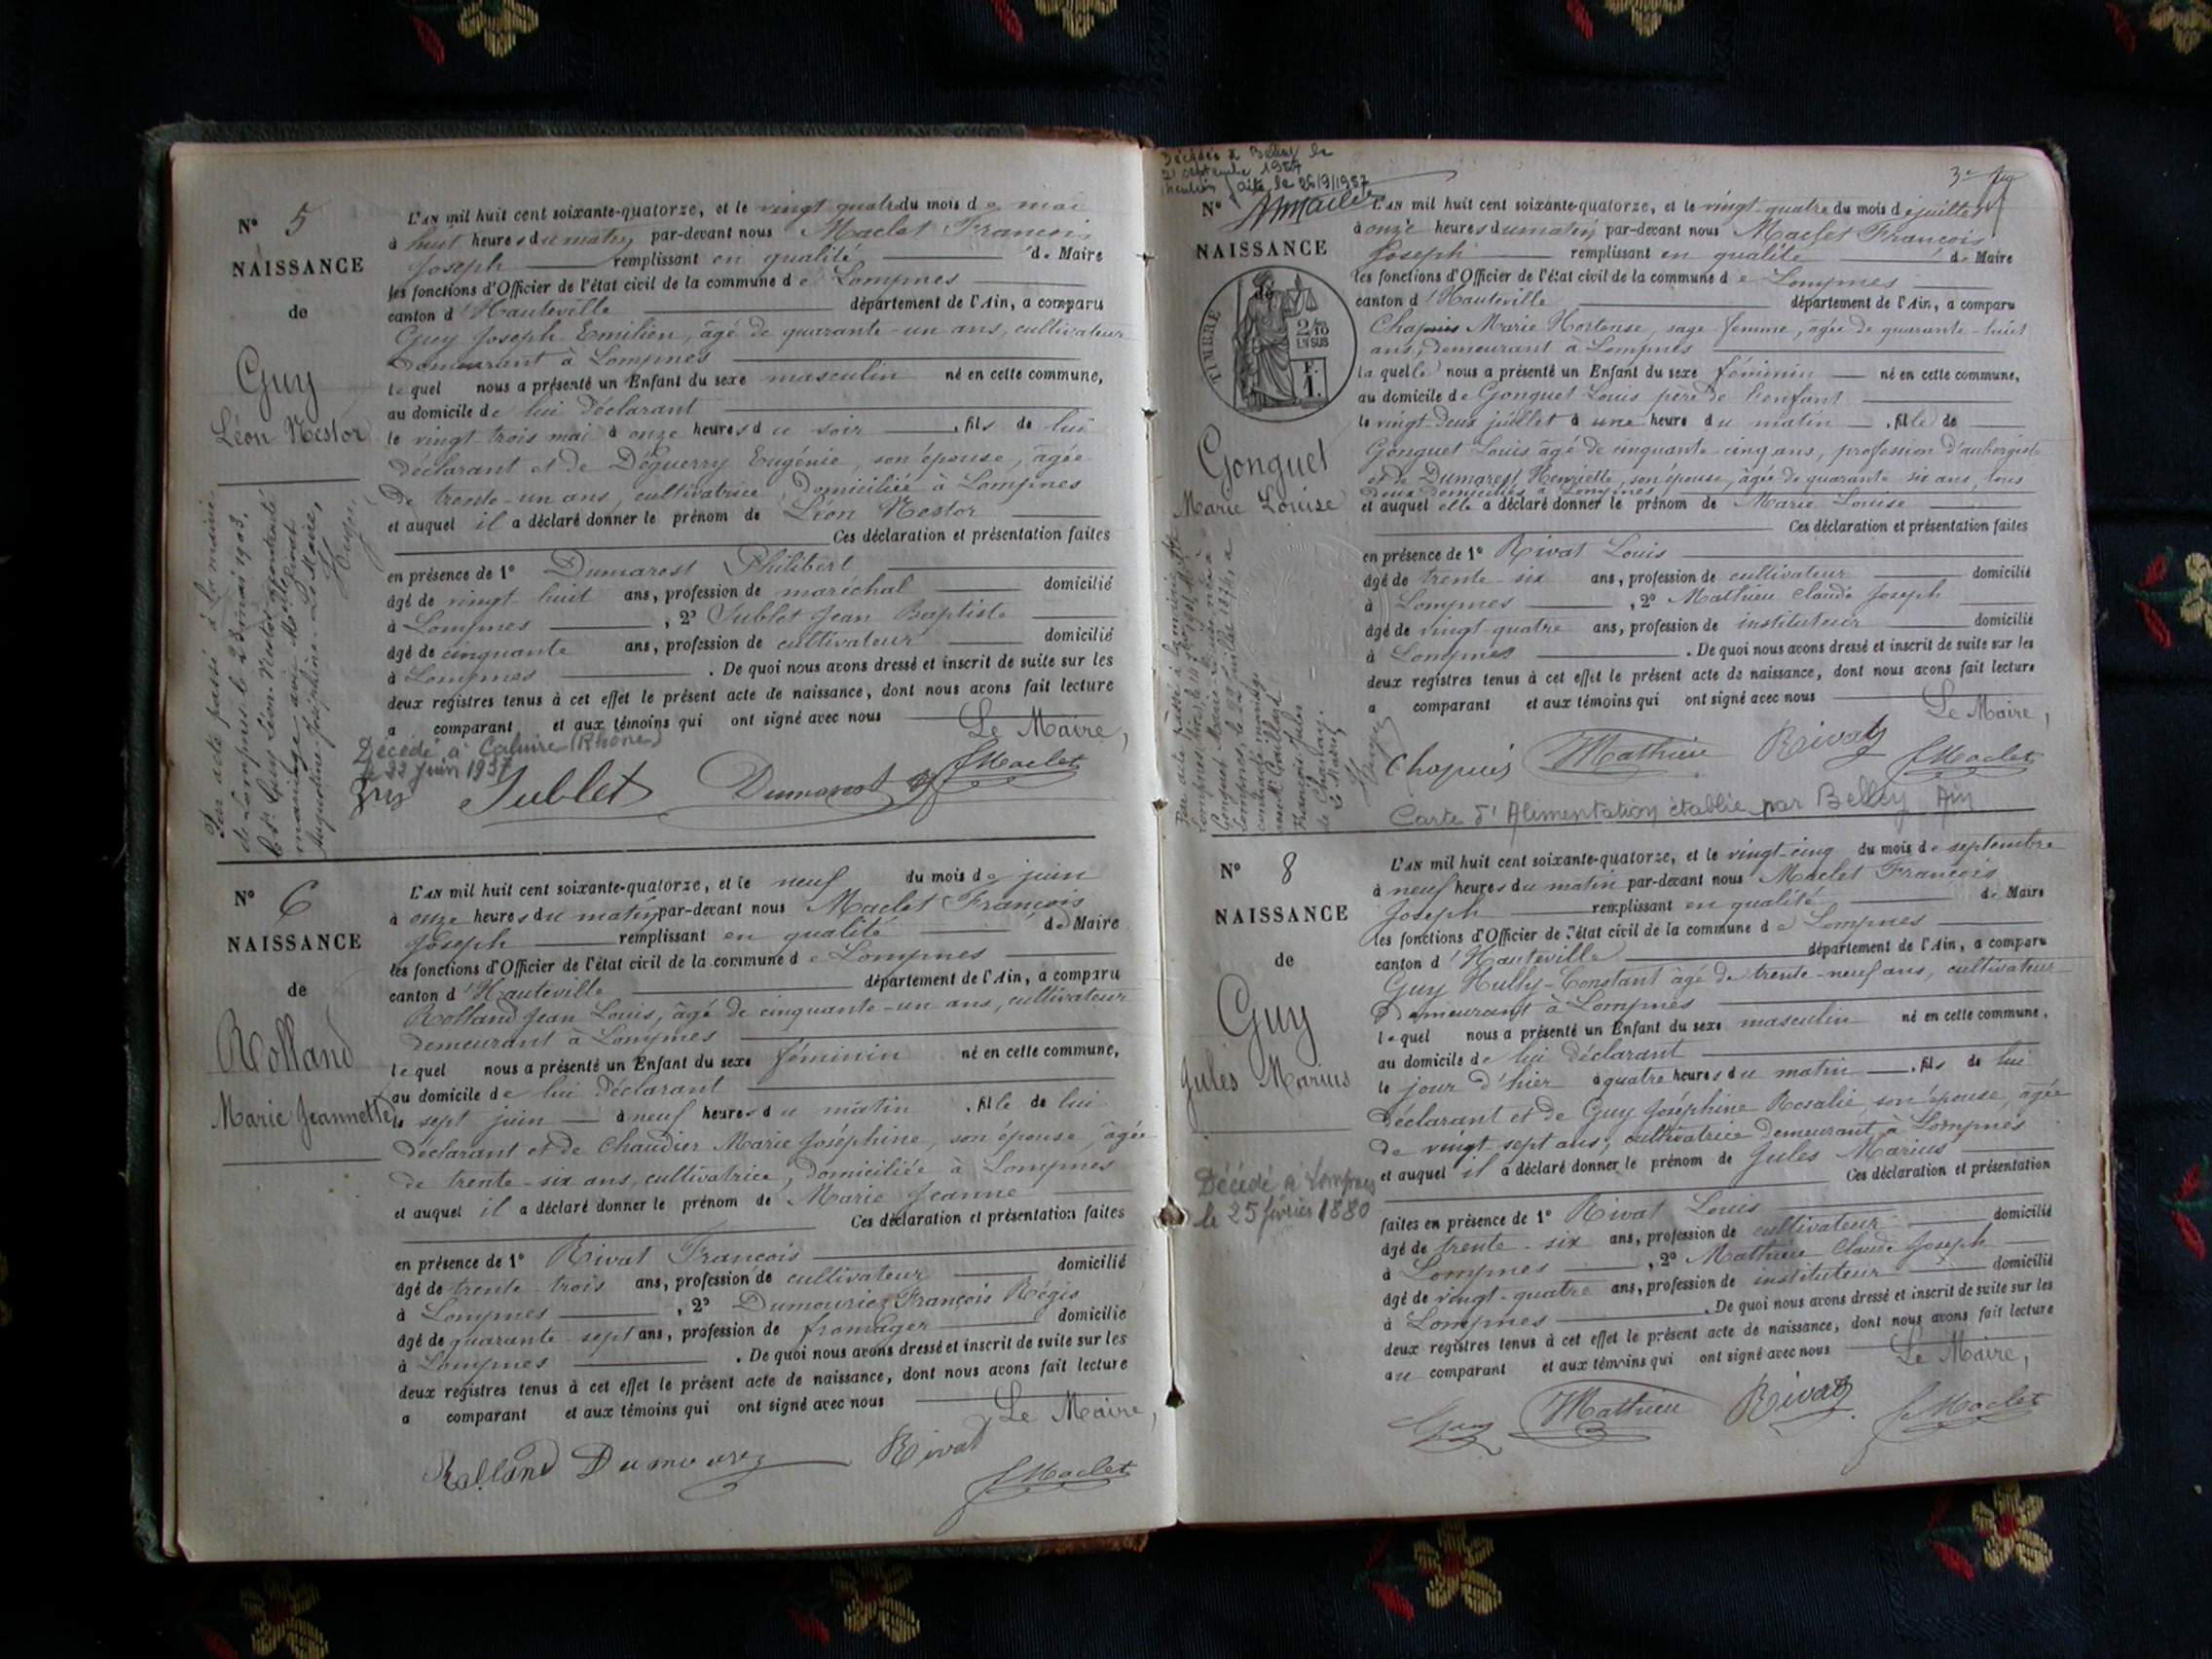 N° 5
NAISSANCE
de
Guy
Léon Nestor
L'AN mil huit cent soixante-quatorze, et le vingt quatre du mois de mai
à huit heures du matin par-devant nous Maclet François
Joseph remplissant en qualité de Maire
les fonctions d'Officier de l'état civil de la commune de Lompnes
canton d'Hauteville département de l'Ain, a comparu
Guy Joseph Emilien, âgé de quarante-un ans, cultivateur
demeurant à Lompnes
lequel nous a présenté un Enfant du sexe masculin né en cette commune,
au domicile de lui déclarant
le vingt trois mai à onze heures du soir, fils de lui
déclarant et de Déguerry Eugénie, son épouse, âgée
de trente-un ans, cultivatrice, domiciliée à Lompnes
et auquel il a déclaré donner le prénom de Léon Nestor
Ces déclaration et présentation faites
en présence de 1° Dumarest Philibert
âgé de vingt huit ans, profession de maréchal domicilié
à Lompnes, 2° Sublet Jean Baptiste
âgé de cinquante ans, profession de cultivateur domicilié
à Lompnes. De quoi nous avons dressé et inscrit de suite sur les
deux registres tenus à cet effet le présent acte de naissance, dont nous avons fait lecture
a comparant et aux témoins qui ont signé avec nous
Le Maire,
Décédé à Caluire (Rhône)
le 22 juin 1937
Sublet Dumarest JMaclet
Par acte passé à la mairie
de Lompnes le 23 mai 1903,
le sr Guy Léon Nestor a contracté
mariage avec
Augustine Joséphine. Le Maire,
N° 6
NAISSANCE
de
Rolland
Marie Jeannette
L'AN mil huit cent soixante-quatorze, et le neuf du mois de juin
à onze heures du matin par-devant nous Maclet François
Joseph remplissant en qualité de Maire
les fonctions d'Officier de l'état civil de la commune de Lompnes
canton d'Hauteville département de l'Ain, a comparu
Rolland Jean Louis, âgé de cinquante-un ans, cultivateur
demeurant à Lompnes
lequel nous a présenté un Enfant du sexe féminin né en cette commune,
au domicile de lui déclarant
le sept juin à neuf heures du matin, fille de lui
déclarant et de Chaudier Marie Joséphine, son épouse, âgée
de trente-six ans, cultivatrice, domiciliée à Lompnes
et auquel il a déclaré donner le prénom de Marie Jeanne
Ces déclaration et présentation faites
en présence de 1° Rivat François
âgé de trente-trois ans, profession de cultivateur domicilié
à Lompnes, 2° Dumouriez François Régis
âgé de quarante-sept ans, profession de fromager domicilié
à Lompnes. De quoi nous avons dressé et inscrit de suite sur les
deux registres tenus à cet effet le présent acte de naissance, dont nous avons fait lecture
a comparant et aux témoins qui ont signé avec nous
Le Maire,
Rolland Dumourez Rivat JMaclet
Décédée à Belley le
21 septembre 1957
mention faite le 26/9/1957
N°
NAISSANCE
de
TIMBRE
2/10
EN SUS
F.
1.
Gonguet
Marie Louise
L'AN mil huit cent soixante-quatorze, et le vingt-quatre du mois de juillet
à onze heures du matin par-devant nous Maclet François
Joseph remplissant en qualité de Maire
les fonctions d'Officier de l'état civil de la commune de Lompnes
canton d'Hauteville département de l'Ain, a comparu
Chapuis Marie Hortense, sage-femme, âgée de quarante-huit
ans, demeurant à Lompnes
laquelle nous a présenté un Enfant du sexe féminin né en cette commune,
au domicile de Gonguet Louis père de l'enfant
le vingt-deux juillet à une heure du matin, fille de
Gonguet Louis âgé de cinquante-cinq ans, profession d'aubergiste
et de Dumarest Henriette, son épouse, âgée de quarante six ans, tous
deux domiciliés à Lompnes
et auquel elle a déclaré donner le prénom de Marie Louise
Ces déclaration et présentation faites
en présence de 1° Rivat Louis
âgé de trente-six ans, profession de cultivateur domicilié
à Lompnes, 2° Mathieu Claude Joseph
âgé de vingt quatre ans, profession de instituteur domicilié
à Lompnes. De quoi nous avons dressé et inscrit de suite sur les
deux registres tenus à cet effet le présent acte de naissance, dont nous avons fait lecture
a comparant et aux témoins qui ont signé avec nous
Le Maire,
Chapuis Mathieu Rivat JMaclet
Carte d'Alimentation établie par Belley Ain
N° 8
NAISSANCE
de
Guy
Jules Marius
Décédé à Lompnes
le 25 février 1880
L'AN mil huit cent soixante-quatorze, et le vingt-cinq du mois de septembre
à neuf heures du matin par-devant nous Maclet François
Joseph remplissant en qualité de Maire
les fonctions d'Officier de l'état civil de la commune de Lompnes
canton d'Hauteville département de l'Ain, a comparu
Guy Hully-Constant âgé de trente-neuf ans, cultivateur
demeurant à Lompnes
lequel nous a présenté un Enfant du sexe masculin né en cette commune,
au domicile de lui déclarant
le jour d'hier à quatre heures du matin, fils de lui
déclarant et de Guy Joséphine Rosalie, son épouse, âgée
de vingt-sept ans, cultivatrice demeurant à Lompnes
et auquel il a déclaré donner le prénom de Jules Marius
Ces déclaration et présentation
faites en présence de 1° Rivat Louis
âgé de trente-six ans, profession de cultivateur domicilié
à Lompnes, 2° Mathieu Claude Joseph
âgé de vingt-quatre ans, profession de instituteur domicilié
à Lompnes. De quoi nous avons dressé et inscrit de suite sur les
deux registres tenus à cet effet le présent acte de naissance, dont nous avons fait lecture
au comparant et aux témoins qui ont signé avec nous
Le Maire,
Guy Mathieu Rivat JMaclet